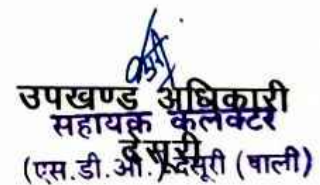 उपखण्ड अधिकारी
सहायक कलेक्टर
देसूरी
(एस.डी.ओ.) देसूरी (पाली)